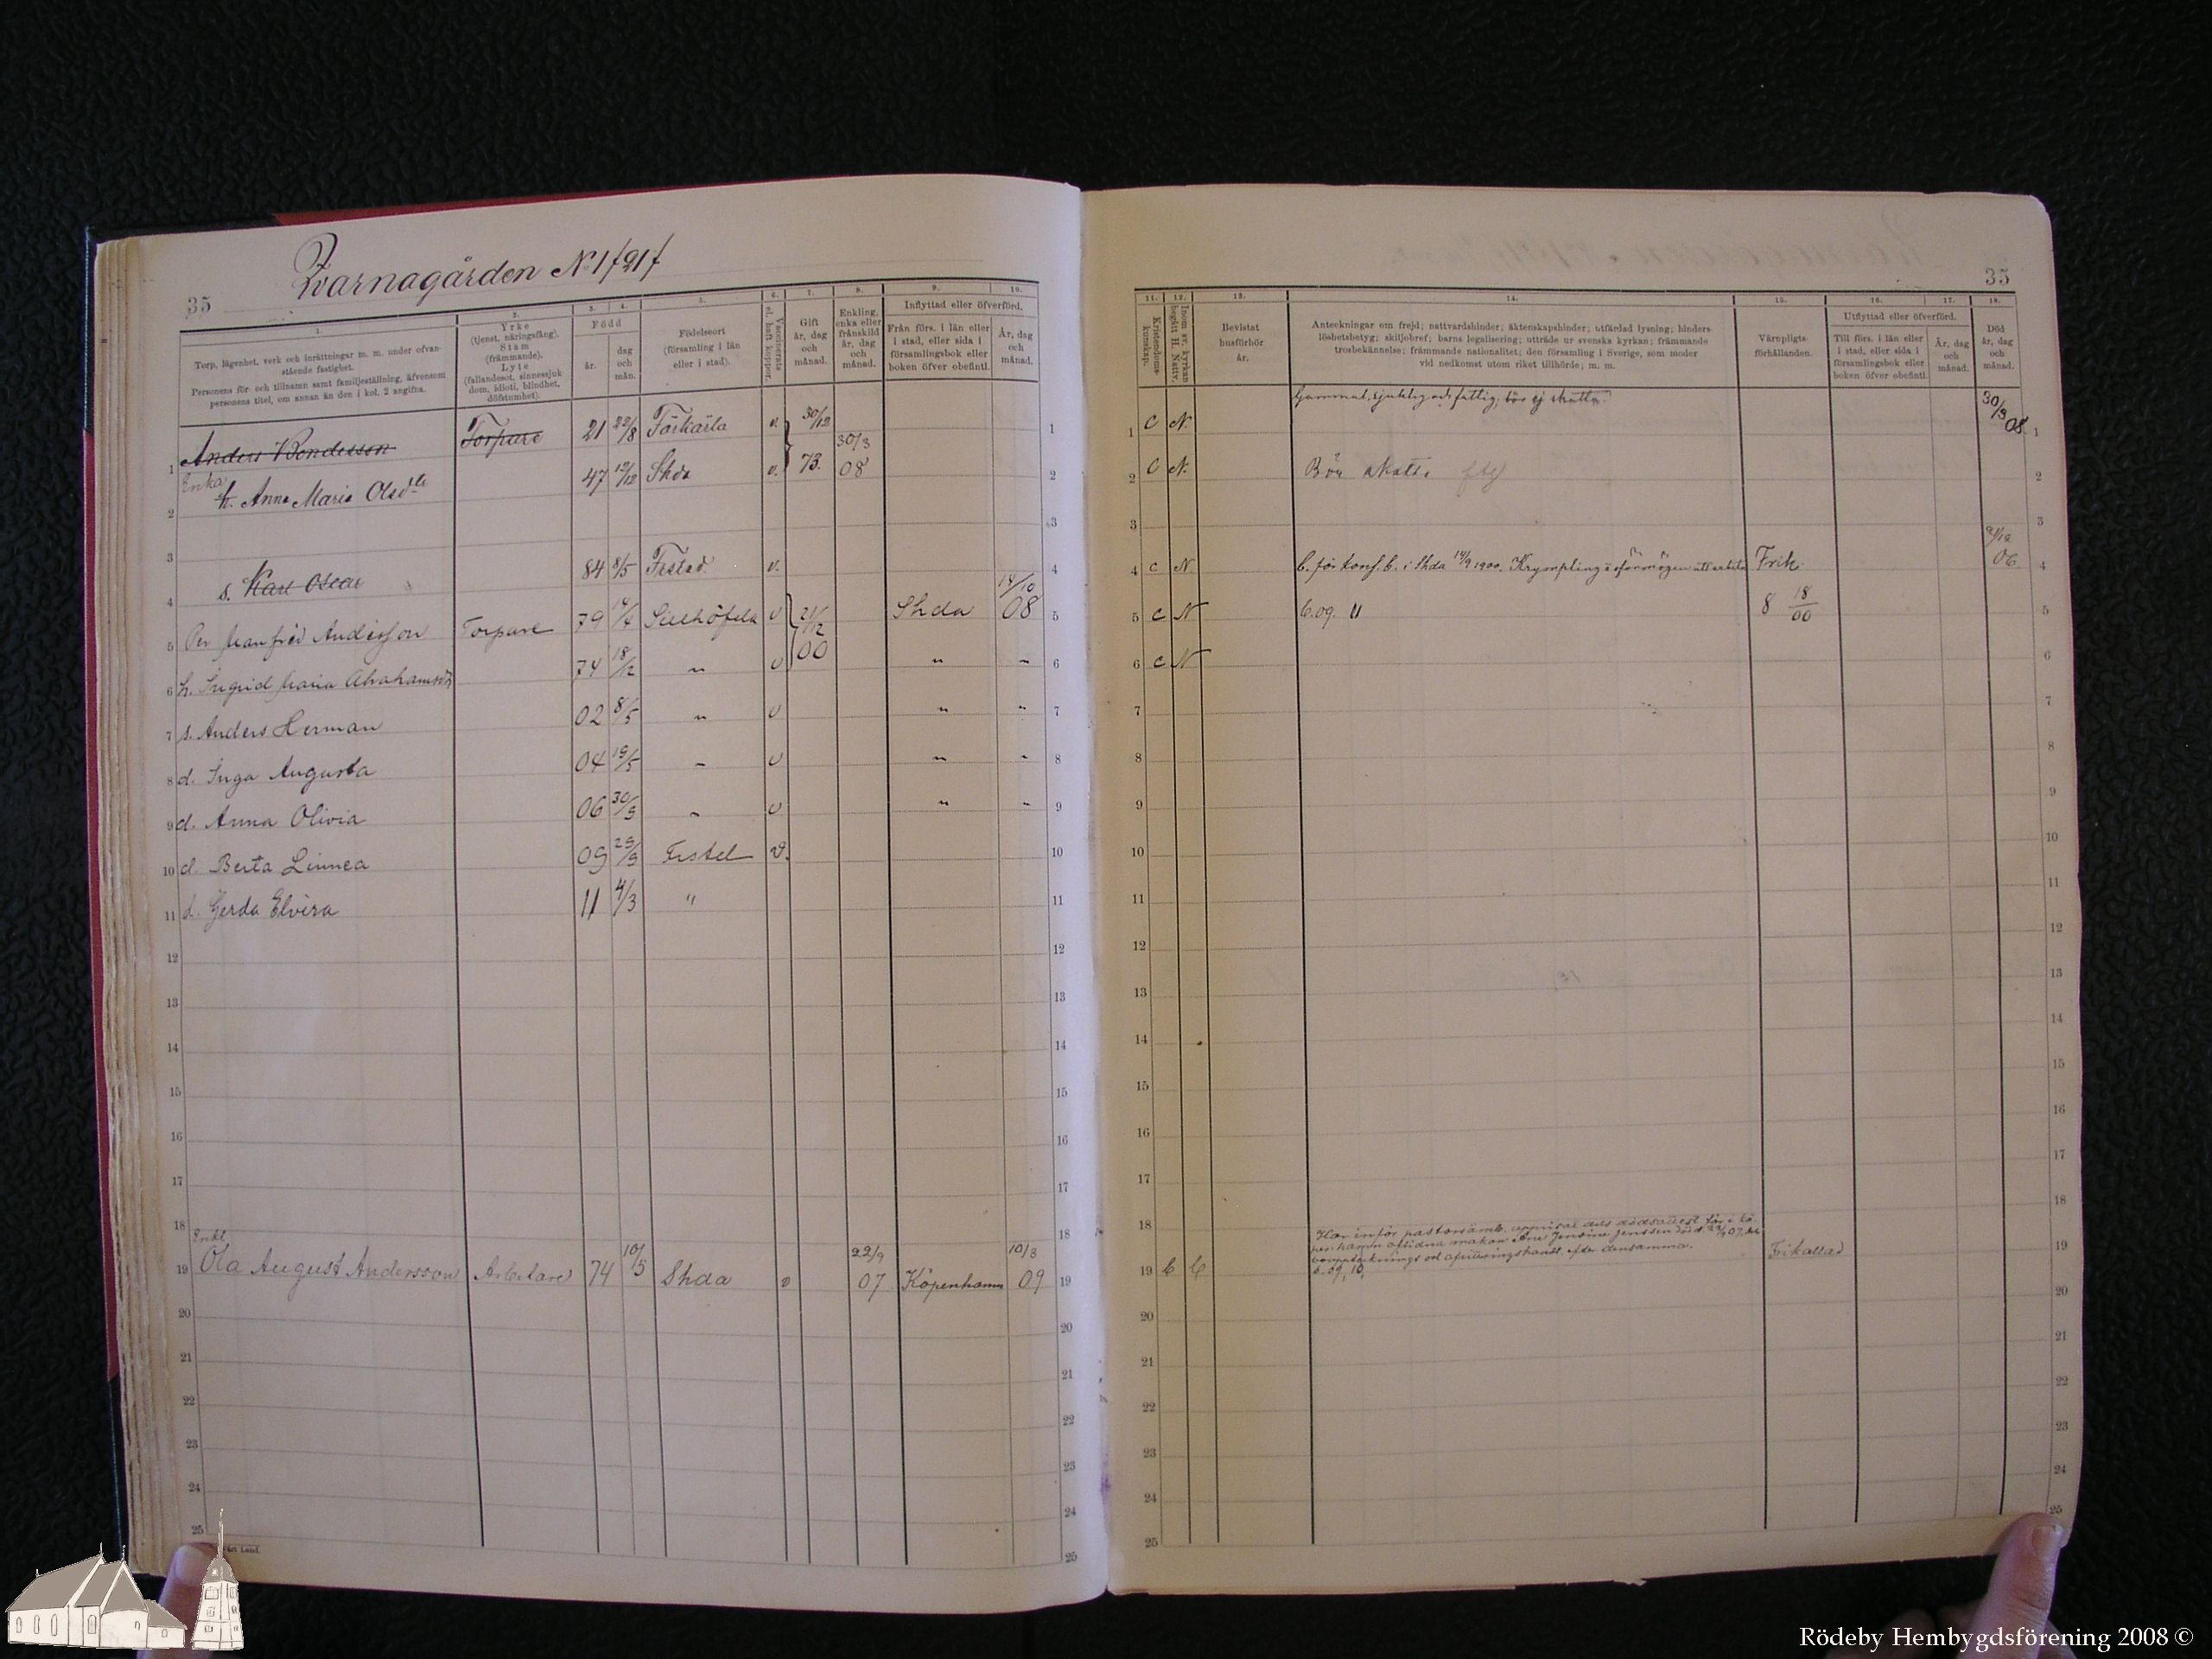 35
Qvarnagården No 1/21/
1.
Torp, lägenhet, verk och inrättningar m. m. under ofvan-
stående fastighet.
Personens för- och tillnamn samt familjeställning, äfvensom
personens titel, om annan än den i kol. 2 angifna.
2.
Yrke
(tjenst, näringsfång).
Stam
(främmande).
Lyte
(fallandesot, sinnessjuk
dom, idioti, blindhet,
döfstumhet).
3. 4.
Född
år. dag
och
mån.
5.
Födelseort
(församling i län
eller i stad).
6.
Vaccinerats
el. haft koppor.
7.
Gift
år, dag
och
månad.
8.
Enkling,
enka eller
frånskild
år, dag
och
månad.
9. 10.
Inflyttad eller öfverförd.
Från förs. i län eller
i stad, eller sida i
församlingsbok eller
boken öfver obefintl.
År, dag
och
månad.
1 Anders Bondesson Torpare 21 22/8 Förkärla v. 30/12 73. 1
2 Enka h. Anna Maria Olsdtr 47 12/12 Shda v. 30/3 08 2
3 3
4 s. Karl Oscar 84 8/5 Frstad v. 4
5 Per Manfrid Andersson Torpare 79 14/4 Sillhöfda v 21/12 00 Shda 14/10 08 5
6 h. Ingrid Maria Abrahamsdtr 74 18/12 " v " " 6
7 s. Anders Herman 02 8/5 " v " " 7
8 d. Inga Augusta 04 19/5 " v " " 8
9 d. Anna Olivia 06 30/9 " v " " 9
10 d. Berta Linnea 09 29/9 Frstel v. 10
11 d. Gerda Elvira 11 4/3 " 11
12 12
13 13
14 14
15 15
16 16
17 17
18 18
Enkl.
19 Ola August Andersson Arbetare 74 10/5 Shda v 22/9 07 Köpenhamn 10/3 09 19
20 20
21 21
22 22
23 23
24 24
25 25
35
11.
Kristendoms-
kunskap.
12.
Inom sv. kyrkan
begått H. Nattv.
13.
Bevistat
husförhör
år.
14.
Anteckningar om frejd; nattvardshinder; äktenskapshinder; utfärdad lysning; hinders-
löshetsbetyg; skiljobref; barns legalisering; utträde ur svenska kyrkan; främmande
trosbekännelse; främmande nationalitet; den församling i Sverige, som moder
vid nedkomst utom riket tillhörde; m. m.
15.
Värnpligts-
förhållanden.
16. 17.
Utflyttad eller öfverförd.
Till förs. i län eller
i stad, eller sida i
församlingsbok eller
boken öfver obefintl.
År, dag
och
månad.
18.
Död
år, dag
och
månad.
1 C N. Gammal, sjuklig och fattig, bör ej skatta. 30/3 08. 1
2 C N. Bör skatta 2
3 3
4 C N. b. för konf. b. i Shda 14/9 1900. Krympling o oförmögen att arbeta Frik. 06. 4
5 C N b.09. 11 8 18/00 5
6 C N 6
7 7
8 8
9 9
10 10
11 11
12 12
13 13
14 14
15 15
16 16
17 17
18 18
Har inför pastorsämb. uppvisat dels dödsattest för i Kö-
penhamn aflidna makan Jensine Jenssen död 22/9 07,
bouppteknings och afvittringshandl. efter densamma.
b. 09, 10,
19 b b Frikallad 19
20 20
21 21
22 22
23 23
24 24
25 25
Rödeby Hembygdsförening 2008 ©